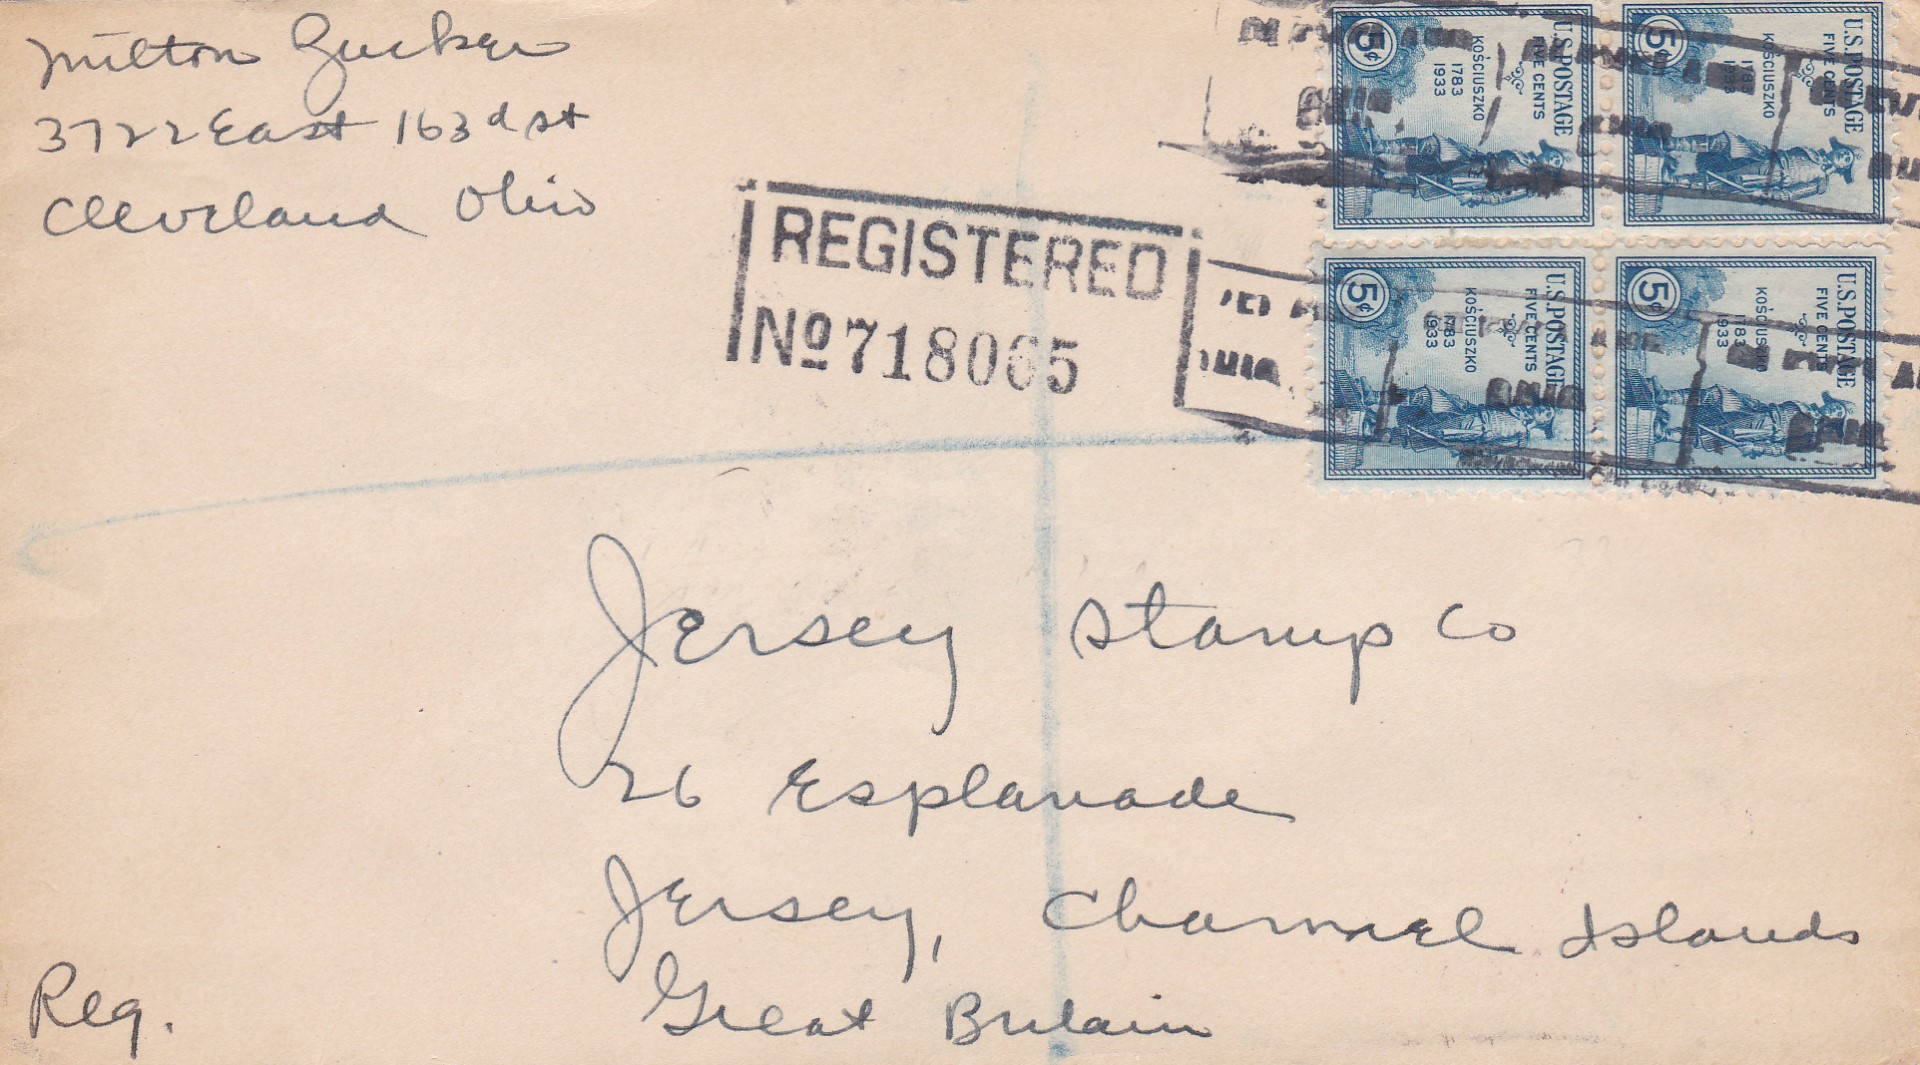 Milton Zucker
3722 East 163d st
Cleveland Ohio
REGISTERED
Nº 718065
U.S. POSTAGE
FIVE CENTS
KOSCIUSZKO
1783
1933
5¢
U.S. POSTAGE
FIVE CENTS
KOSCIUSZKO
1783
1933
5¢
U.S. POSTAGE
FIVE CENTS
KOSCIUSZKO
1783
1933
5¢
U.S. POSTAGE
FIVE CENTS
KOSCIUSZKO
1783
1933
5¢
OHIO
Jersey Stamp Co
26 Esplanade
Jersey, Channel Islands
Great Britain
Reg.